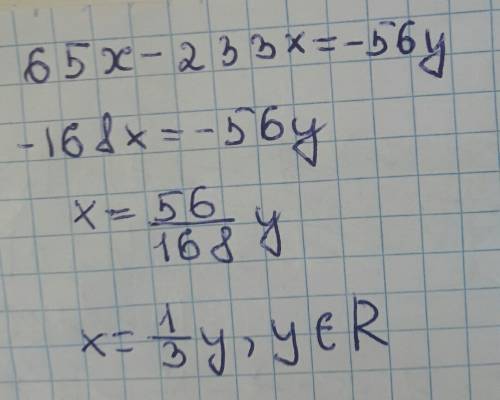 65x - 233x = -56y
-168x = -56y
x = 56/168 y
x = 1/3 y, y ∈ R